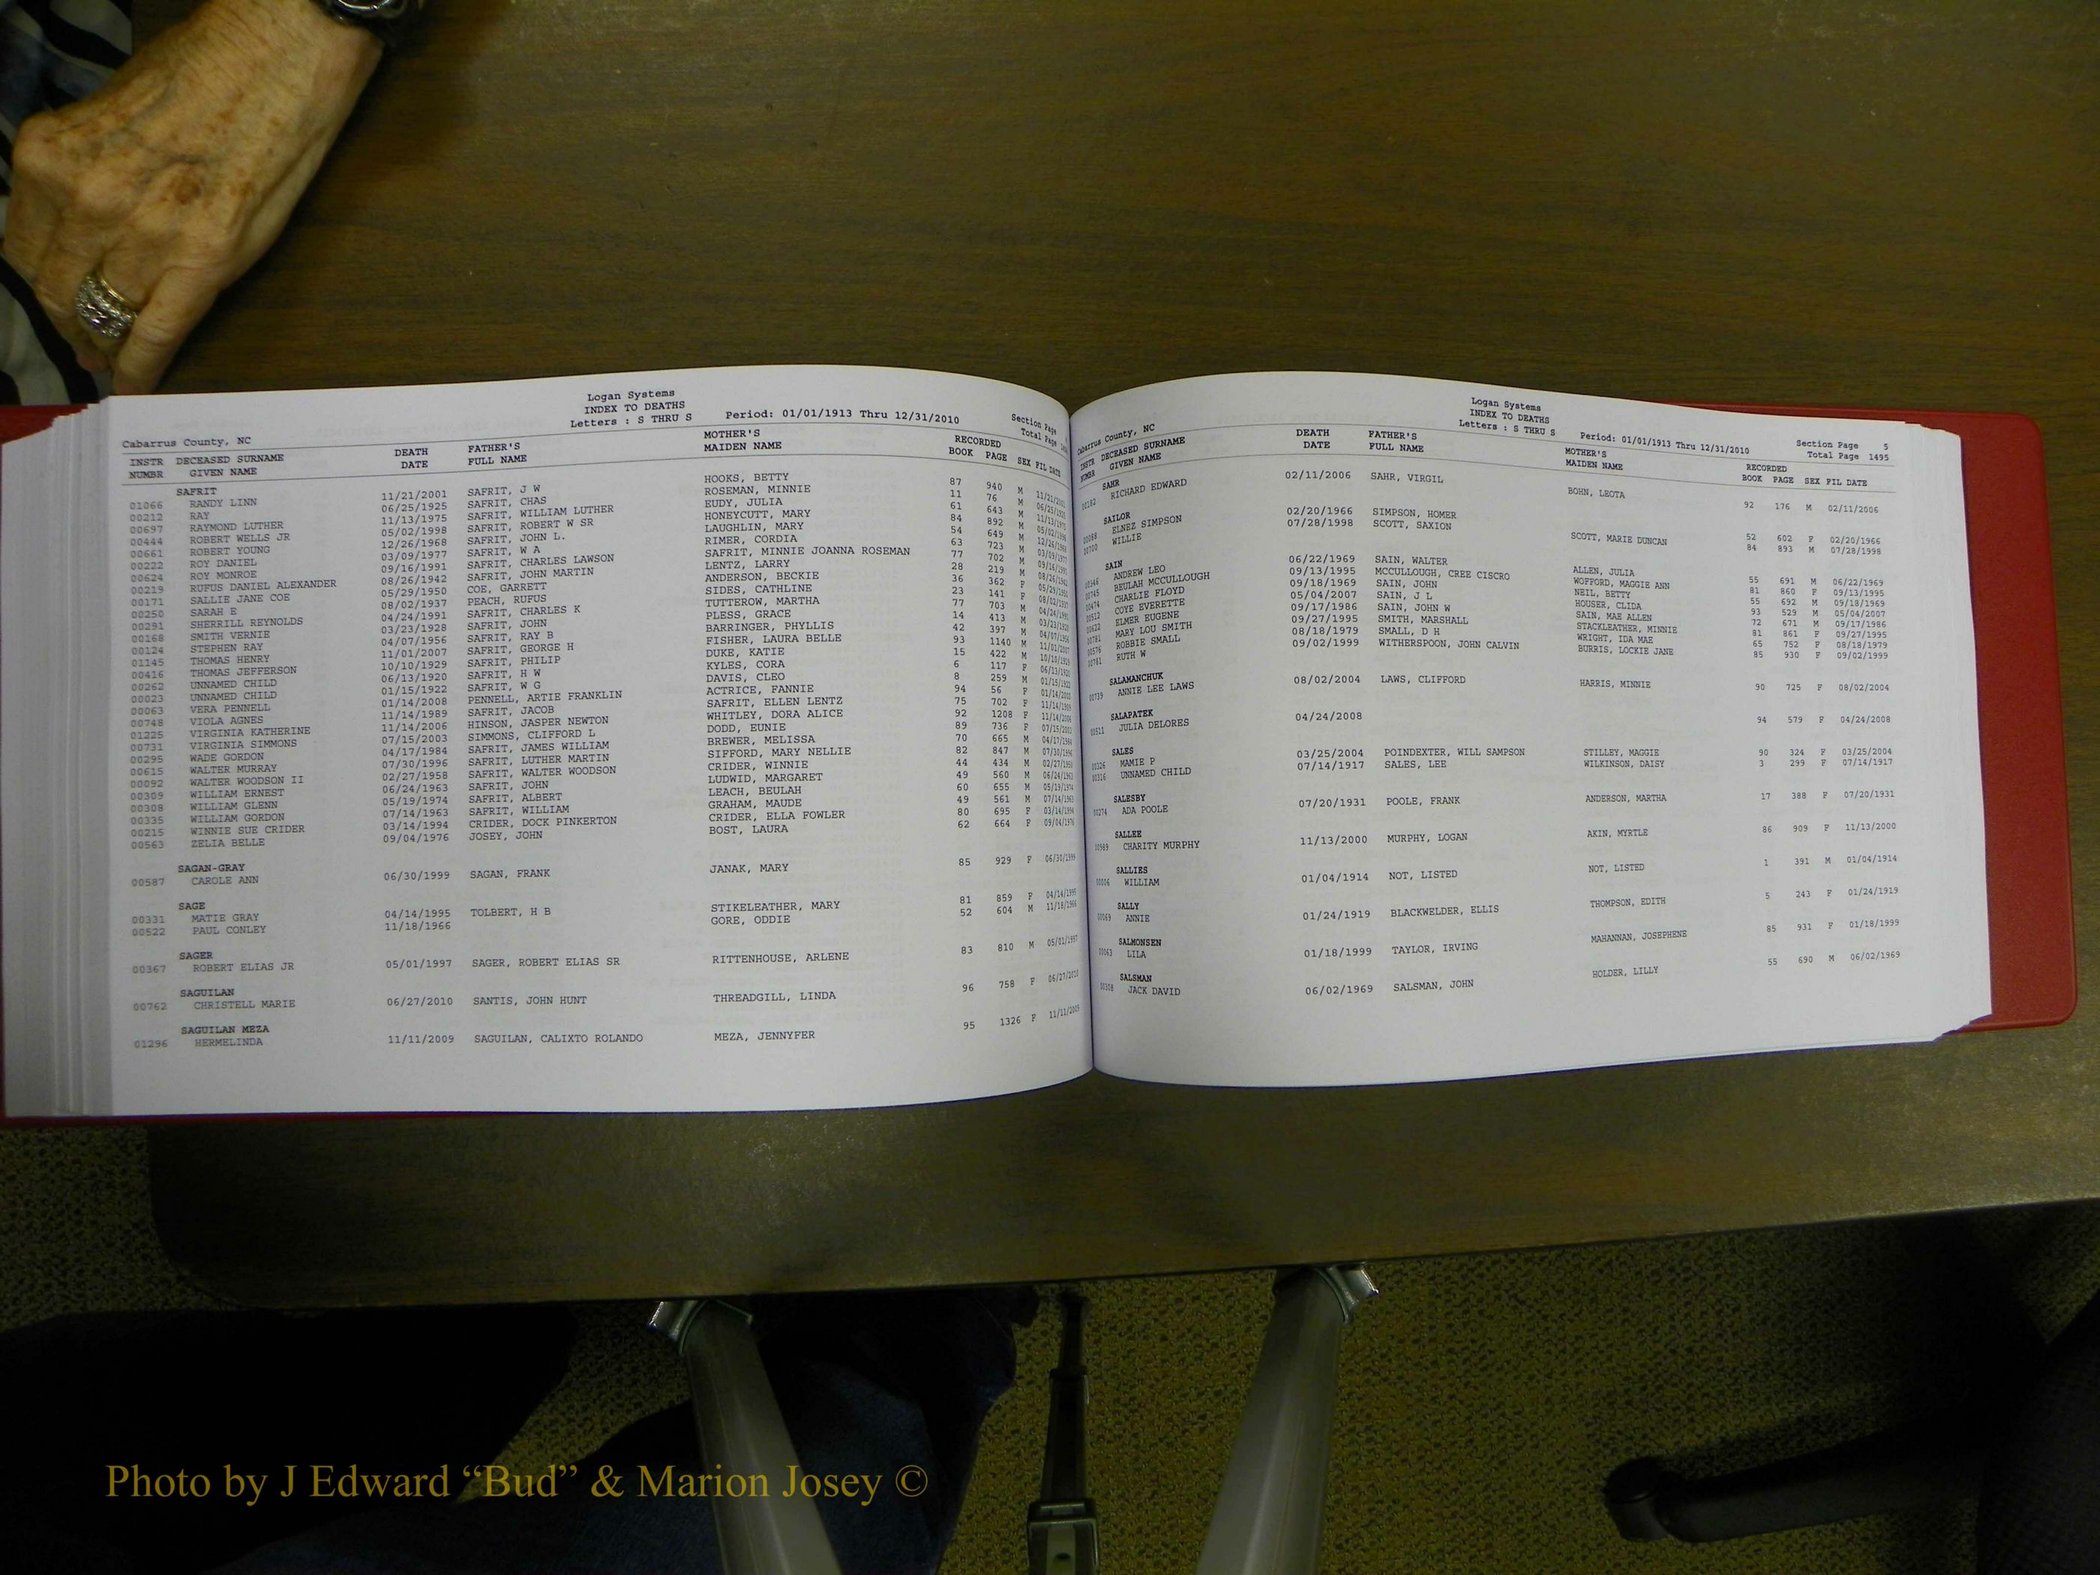 Logan Systems
INDEX TO DEATHS
Cabarrus County, NC Letters : S THRU S Period: 01/01/1913 Thru 12/31/2010 Section Page
Total Page
INSTR DECEASED SURNAME DEATH FATHER'S MOTHER'S RECORDED
NUMBR GIVEN NAME DATE FULL NAME MAIDEN NAME BOOK PAGE SEX FIL DATE
SAFRIT
01066 RANDY LINN 11/21/2001 SAFRIT, J W HOOKS, BETTY 87 940 M 11/21/2001
00212 RAY 06/25/1925 SAFRIT, CHAS ROSEMAN, MINNIE 11 76 M 06/25/1925
00697 RAYMOND LUTHER 11/13/1975 SAFRIT, WILLIAM LUTHER EUDY, JULIA 61 643 M 11/13/1975
00444 ROBERT WELLS JR 05/02/1998 SAFRIT, ROBERT W SR HONEYCUTT, MARY 84 892 M 05/02/1998
00661 ROBERT YOUNG 12/26/1968 SAFRIT, JOHN L. LAUGHLIN, MARY 54 649 M 12/26/1968
00222 ROY DANIEL 03/09/1977 SAFRIT, W A RIMER, CORDIA 63 723 M 03/09/1977
00624 ROY MONROE 09/16/1991 SAFRIT, CHARLES LAWSON SAFRIT, MINNIE JOANNA ROSEMAN 77 702 M 09/16/1991
00219 RUFUS DANIEL ALEXANDER 08/26/1942 SAFRIT, JOHN MARTIN LENTZ, LARRY 28 219 M 08/26/1942
00171 SALLIE JANE COE 05/29/1950 COE, GARRETT ANDERSON, BECKIE 36 362 F 05/29/1950
00250 SARAH E 08/02/1937 PEACH, RUFUS SIDES, CATHLINE 23 141 F 08/02/1937
00291 SHERRILL REYNOLDS 04/24/1991 SAFRIT, CHARLES K TUTTEROW, MARTHA 77 703 M 04/24/1991
00168 SMITH VERNIE 03/23/1928 SAFRIT, JOHN PLESS, GRACE 14 413 M 03/23/1928
00124 STEPHEN RAY 04/07/1956 SAFRIT, RAY B BARRINGER, PHYLLIS 42 397 M 04/07/1956
01145 THOMAS HENRY 11/01/2007 SAFRIT, GEORGE H FISHER, LAURA BELLE 93 1140 M 11/01/2007
00416 THOMAS JEFFERSON 10/10/1929 SAFRIT, PHILIP DUKE, KATIE 15 422 M 10/10/1929
00262 UNNAMED CHILD 06/13/1920 SAFRIT, H W KYLES, CORA 6 117 F 06/13/1920
00023 UNNAMED CHILD 01/15/1922 SAFRIT, W G DAVIS, CLEO 8 259 M 01/15/1922
00063 VERA PENNELL 01/14/2008 PENNELL, ARTIE FRANKLIN ACTRICE, FANNIE 94 56 F 01/14/2008
00748 VIOLA AGNES 11/14/1989 SAFRIT, JACOB SAFRIT, ELLEN LENTZ 75 702 F 11/14/1989
01225 VIRGINIA KATHERINE 11/14/2006 HINSON, JASPER NEWTON WHITLEY, DORA ALICE 92 1208 F 11/14/2006
00731 VIRGINIA SIMMONS 07/15/2003 SIMMONS, CLIFFORD L DODD, EUNIE 89 736 F 07/15/2003
00295 WADE GORDON 04/17/1984 SAFRIT, JAMES WILLIAM BREWER, MELISSA 70 665 M 04/17/1984
00615 WALTER MURRAY 07/30/1996 SAFRIT, LUTHER MARTIN SIFFORD, MARY NELLIE 82 847 M 07/30/1996
00092 WALTER WOODSON II 02/27/1958 SAFRIT, WALTER WOODSON CRIDER, WINNIE 44 434 M 02/27/1958
00309 WILLIAM ERNEST 06/24/1963 SAFRIT, JOHN LUDWID, MARGARET 49 560 M 06/24/1963
00308 WILLIAM GLENN 05/19/1974 SAFRIT, ALBERT LEACH, BEULAH 60 655 M 05/19/1974
00335 WILLIAM GORDON 07/14/1963 SAFRIT, WILLIAM GRAHAM, MAUDE 49 561 M 07/14/1963
00215 WINNIE SUE CRIDER 03/14/1994 CRIDER, DOCK PINKERTON CRIDER, ELLA FOWLER 80 695 F 03/14/1994
00563 ZELIA BELLE 09/04/1976 JOSEY, JOHN BOST, LAURA 62 664 F 09/04/1976
SAGAN-GRAY
00587 CAROLE ANN 06/30/1999 SAGAN, FRANK JANAK, MARY 85 929 F 06/30/1999
SAGE
00331 MATIE GRAY 04/14/1995 TOLBERT, H B STIKELEATHER, MARY 81 859 F 04/14/1995
00522 PAUL CONLEY 11/18/1966 GORE, ODDIE 52 604 M 11/18/1966
SAGER
00367 ROBERT ELIAS JR 05/01/1997 SAGER, ROBERT ELIAS SR RITTENHOUSE, ARLENE 83 810 M 05/01/1997
SAGUILAN
00762 CHRISTELL MARIE 06/27/2010 SANTIS, JOHN HUNT THREADGILL, LINDA 96 758 F 06/27/2010
SAGUILAN MEZA
01296 HERMELINDA 11/11/2009 SAGUILAN, CALIXTO ROLANDO MEZA, JENNYFER 95 1326 F 11/11/2009
Logan Systems
INDEX TO DEATHS
Cabarrus County, NC Letters : S THRU S Period: 01/01/1913 Thru 12/31/2010 Section Page 5
Total Page 1495
INSTR DECEASED SURNAME DEATH FATHER'S MOTHER'S RECORDED
NUMBR GIVEN NAME DATE FULL NAME MAIDEN NAME BOOK PAGE SEX FIL DATE
SAHR
00182 RICHARD EDWARD 02/11/2006 SAHR, VIRGIL BOHN, LEOTA 92 176 M 02/11/2006
SAILOR
00088 ELNEZ SIMPSON 02/20/1966 SIMPSON, HOMER SCOTT, MARIE DUNCAN 52 602 F 02/20/1966
00700 WILLIE 07/28/1998 SCOTT, SAXION 84 893 M 07/28/1998
SAIN
00346 ANDREW LEO 06/22/1969 SAIN, WALTER ALLEN, JULIA 55 691 M 06/22/1969
00745 BEULAH MCCULLOUGH 09/13/1995 MCCULLOUGH, CREE CISCRO WOFFORD, MAGGIE ANN 81 860 F 09/13/1995
00474 CHARLIE FLOYD 09/18/1969 SAIN, JOHN NEIL, BETTY 55 692 M 09/18/1969
00512 COYE EVERETTE 05/04/2007 SAIN, J L HOUSER, CLIDA 93 529 M 05/04/2007
00622 ELMER EUGENE 09/17/1986 SAIN, JOHN W SAIN, MAE ALLEN 72 671 M 09/17/1986
00781 MARY LOU SMITH 09/27/1995 SMITH, MARSHALL STACKLEATHER, MINNIE 81 861 F 09/27/1995
00576 ROBBIE SMALL 08/18/1979 SMALL, D H WRIGHT, IDA MAE 65 752 F 08/18/1979
00781 RUTH W 09/02/1999 WITHERSPOON, JOHN CALVIN BURRIS, LOCKIE JANE 85 930 F 09/02/1999
SALAMANCHUK
00739 ANNIE LEE LAWS 08/02/2004 LAWS, CLIFFORD HARRIS, MINNIE 90 725 F 08/02/2004
SALAPATEK
00511 JULIA DELORES 04/24/2008 94 579 F 04/24/2008
SALES
00326 MAMIE P 03/25/2004 POINDEXTER, WILL SAMPSON STILLEY, MAGGIE 90 324 F 03/25/2004
00316 UNNAMED CHILD 07/14/1917 SALES, LEE WILKINSON, DAISY 3 299 F 07/14/1917
SALESBY
00274 ADA POOLE 07/20/1931 POOLE, FRANK ANDERSON, MARTHA 17 388 F 07/20/1931
SALLEE
00989 CHARITY MURPHY 11/13/2000 MURPHY, LOGAN AKIN, MYRTLE 86 909 F 11/13/2000
SALLIES
00006 WILLIAM 01/04/1914 NOT, LISTED NOT, LISTED 1 391 M 01/04/1914
SALLY
00069 ANNIE 01/24/1919 BLACKWELDER, ELLIS THOMPSON, EDITH 5 243 F 01/24/1919
SALMONSEN
00063 LILA 01/18/1999 TAYLOR, IRVING MAHANNAN, JOSEPHENE 85 931 F 01/18/1999
SALSMAN
00308 JACK DAVID 06/02/1969 SALSMAN, JOHN HOLDER, LILLY 55 690 M 06/02/1969
Photo by J Edward “Bud” & Marion Josey ©